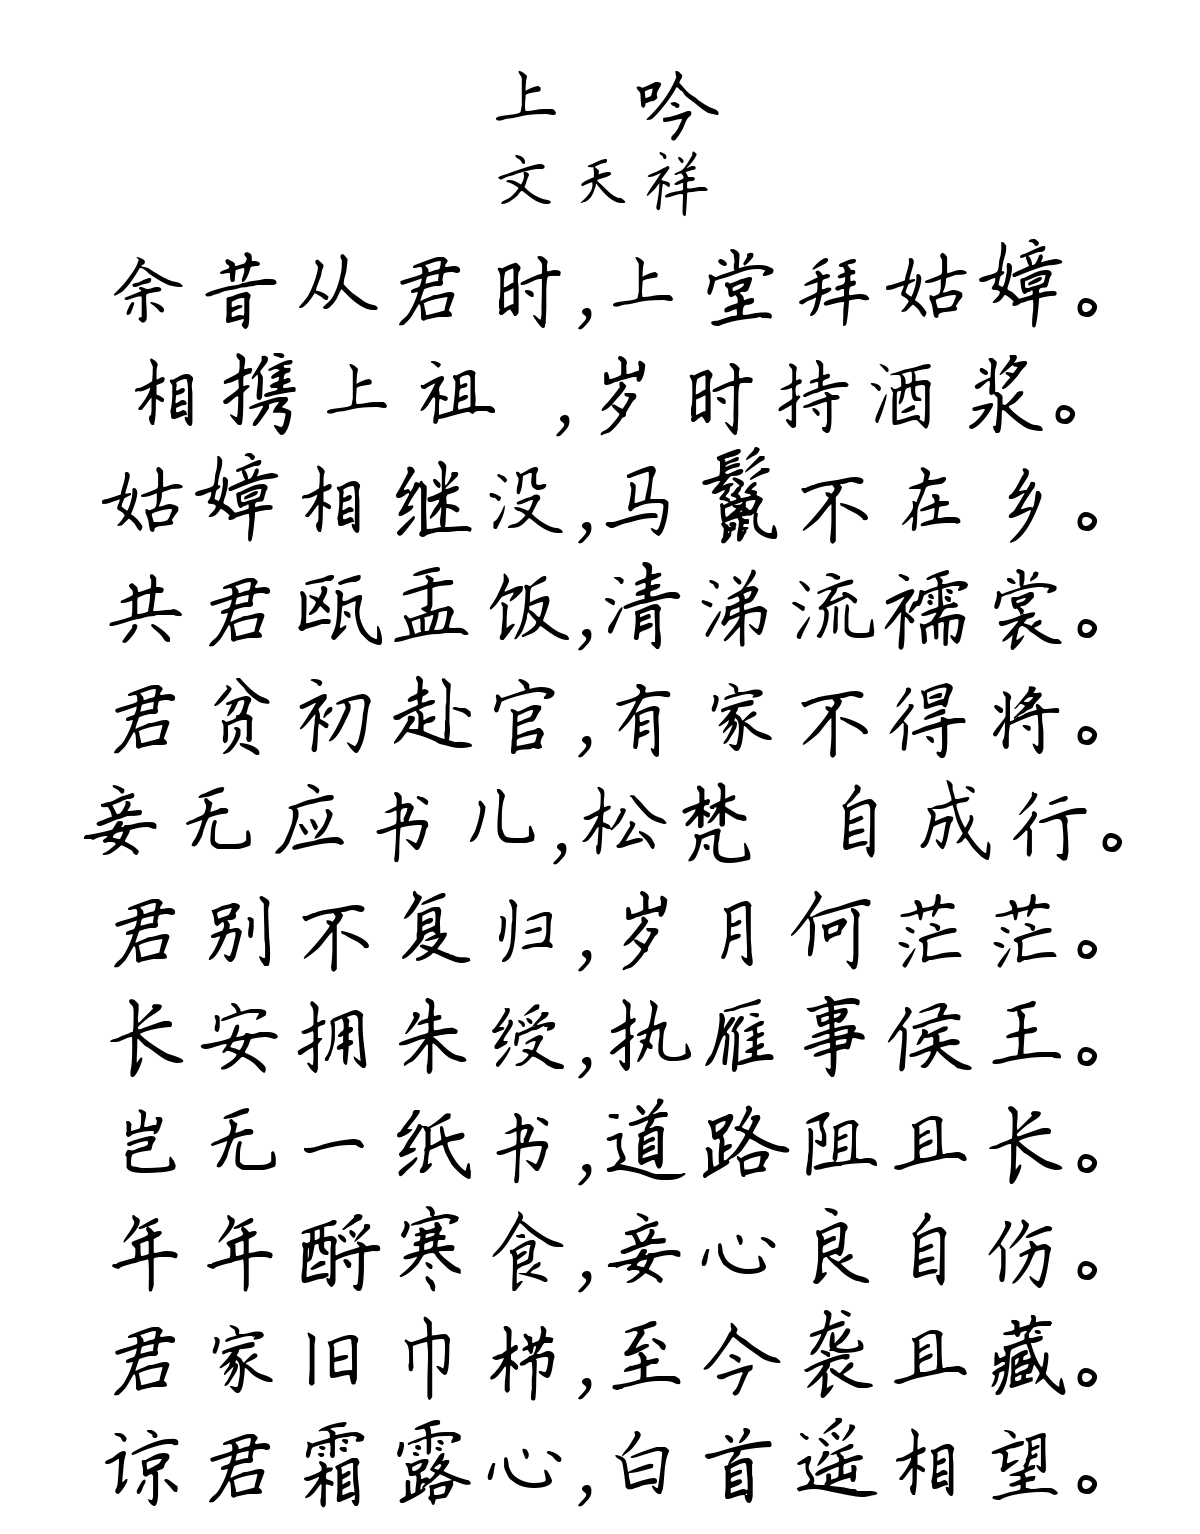 上 吟
文天祥
余昔从君时,上堂拜姑嫜。
相携上祖 ,岁时持酒浆。
姑嫜相继没,马鬣不在乡。
共君瓯盂饭,清涕流襦裳。
君贫初赴官,有家不得将。
妾无应书儿,松梵 自成行。
君别不复归,岁月何茫茫。
长安拥朱绶,执雁事侯王。
岂无一纸书,道路阻且长。
年年酹寒食,妾心良自伤。
君家旧巾栉,至今袭且藏。
谅君霜露心,白首遥相望。